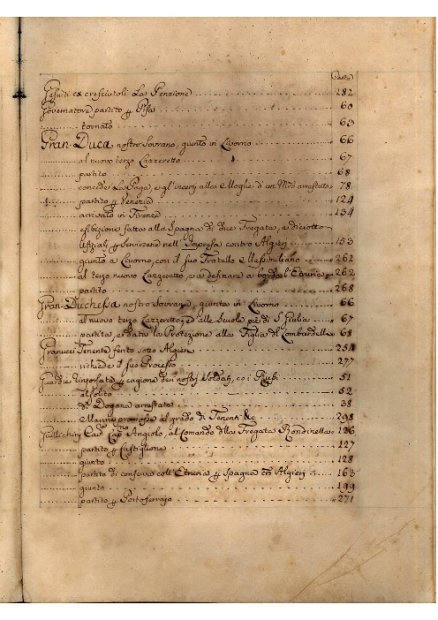 Carte
di La Pensione 282
Governatore partito p Pisa 60
tornato 63
Gran Duca nostro Sovrano, giunto in Livorno 66
al nuovo terzo Lazzeretto 67
partito 68
concede La Paga, agl' alla Moglie di un arrestato 78
partito p Venezia 124
arrivato in Firenze 134
esibizione fatta alla Spagna di due Fregate, e diciotto
Uffiziali p servirsene nell' Impresa contro Algieri 153
giunto a Livorno, con il suo Fratello Massimiliano 262
al terzo nuovo Lazzeretto, e a desinare a bordo 262
partito 268
Gran Duchessa nostra Sovrana, giunta in Livorno 66
al nuovo terzo Lazzeretto, e alle Scuole di S. Giulia 67
partita, la Protezione alla Figlia di 68
Tenente ferito sotto Algieri 254
richiede il suo Processo 277
Guardie p cagione dei nostri Soldati, co i 51
al solito 52
di Dogana arrestata 38
promosso al grado di Tenente 298
Angiolo, al Comando della Fregata Rondinella 126
partito p Castiglione 127
giunto 128
partito di conserva coll' Etruria p Spagna Algieri 163
giunto 199
partito p Portoferraio 271